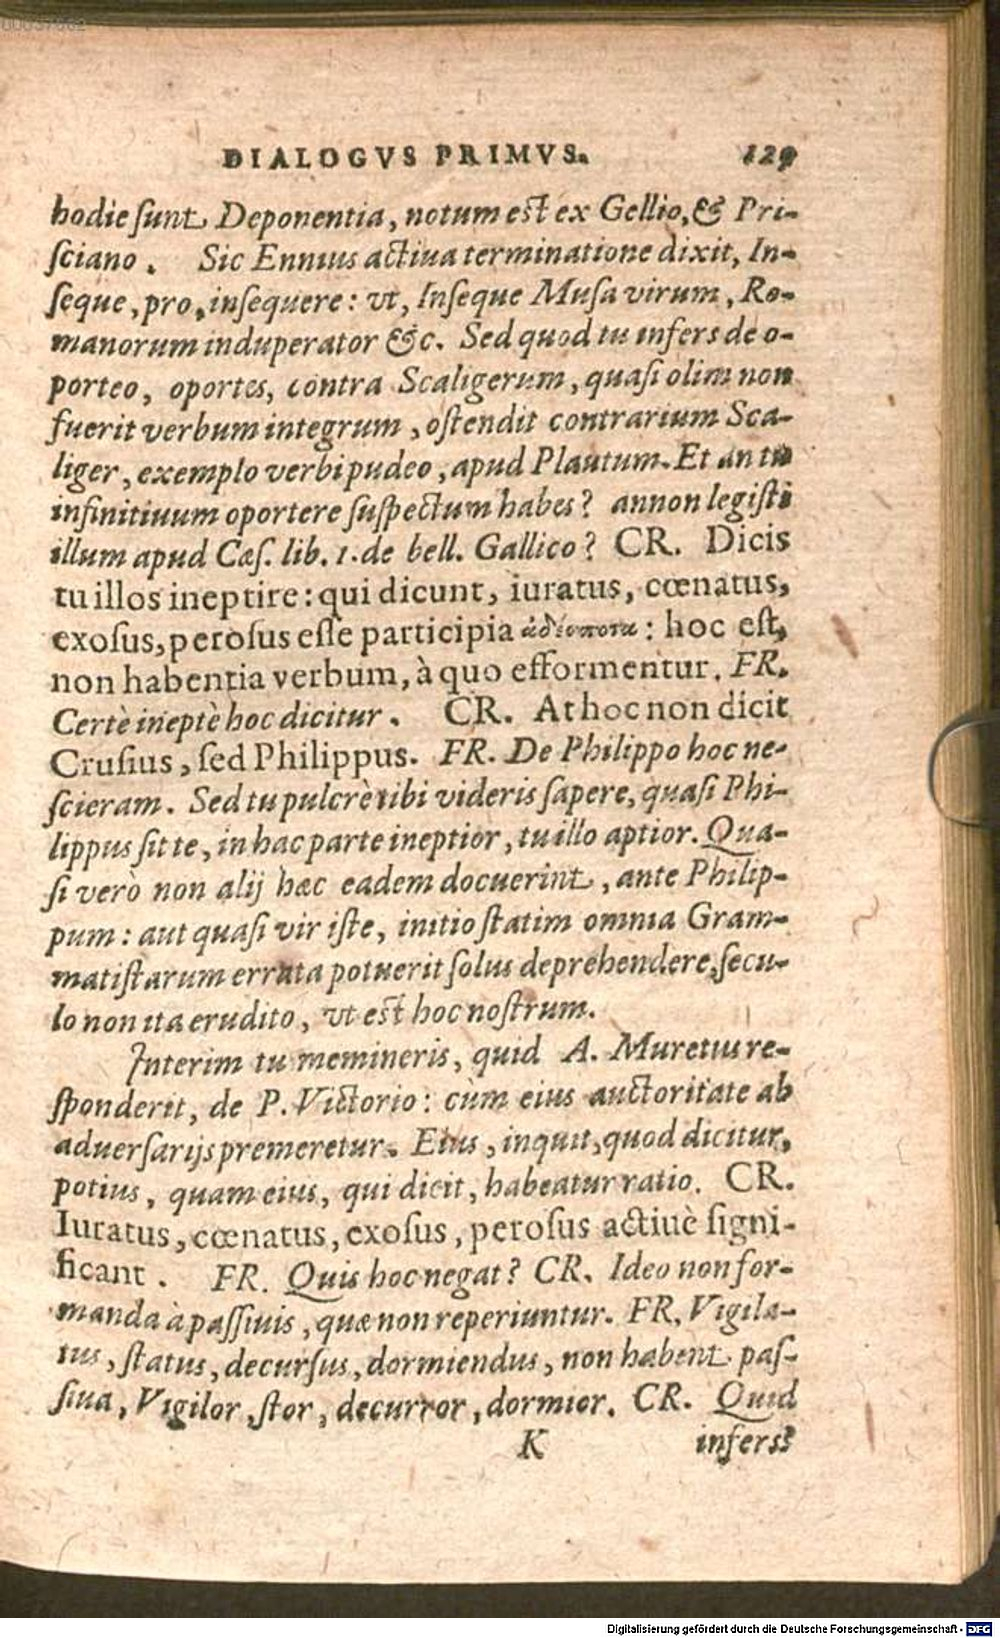 00037862
DIALOGVS PRIMVS. 129
hodie sunt Deponentia, notum est ex Gellio, & Pri-
sciano. Sic Ennius actiua terminatione dixit, In-
seque, pro, insequere: vt, Inseque Musa virum, Ro-
manorum induperator &c. Sed quod tu infers de o-
porteo, oportes, contra Scaligerum, quasi olim non
fuerit verbum integrum, ostendit contrarium Sca-
liger, exemplo verbi pudeo, apud Plautum. Et an tu
infinitiuum oportere suspectum habes? annon legisti
illum apud Cæs. lib. 1. de bell. Gallico? CR. Dicis
tu illos ineptire: qui dicunt, iuratus, cœnatus,
exosus, perosus esse participia : hoc est,
non habentia verbum, à quo efformentur. FR.
Certè ineptè hoc dicitur. CR. At hoc non dicit
Crusius, sed Philippus. FR. De Philippo hoc ne-
scieram. Sed tu pulcrè tibi videris sapere, quasi Phi-
lippus sit te, in hac parte ineptior, tu illo aptior. Qua-
si verò non alij hæc eadem docuerint, ante Philip-
pum: aut quasi vir iste, initio statim omnia Gram-
matistarum errata potuerit solus deprehendere, secu-
lo non ita erudito, vt est hoc nostrum.
Interim tu memineris, quid A. Muretus re-
sponderit, de P. Victorio: cùm eius auctoritate ab
aduersarijs premeretur. Eius, inquit, quod dicitur,
potius, quam eius, qui dicit, habeatur ratio. CR.
Iuratus, cœnatus, exosus, perosus actiuè signi-
ficant. FR. Quis hoc negat? CR. Ideo non for-
manda à passiuis, quæ non reperiuntur. FR. Vigila-
tus, status, decursus, dormiendus, non habent pas-
siua, Vigilor, stor, decurror, dormior. CR. Quid
K infers?
Digitalisierung gefördert durch die Deutsche Forschungsgemeinschaft - DFG